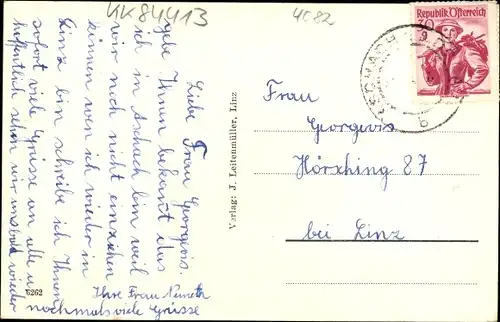 KK84413
4082
Republik Österreich
30
ASCHACH
b
Liebe Frau Georgevis.
gebe Ihnen bekannt das
ich in Aschach bin weil
wir noch nicht einziehen
können wen ich wieder in
Linz bin schreibe ich Ihnen
sofort viele Grüsse an alle u.
hoffentlich sehen wir uns bald wieder
Ihre Frau Nemeth
nochmals viele Grüsse
6262
Verlag: J. Leitenmüller, Linz
Frau
Georgevis
Hörxhing 87
bei Linz